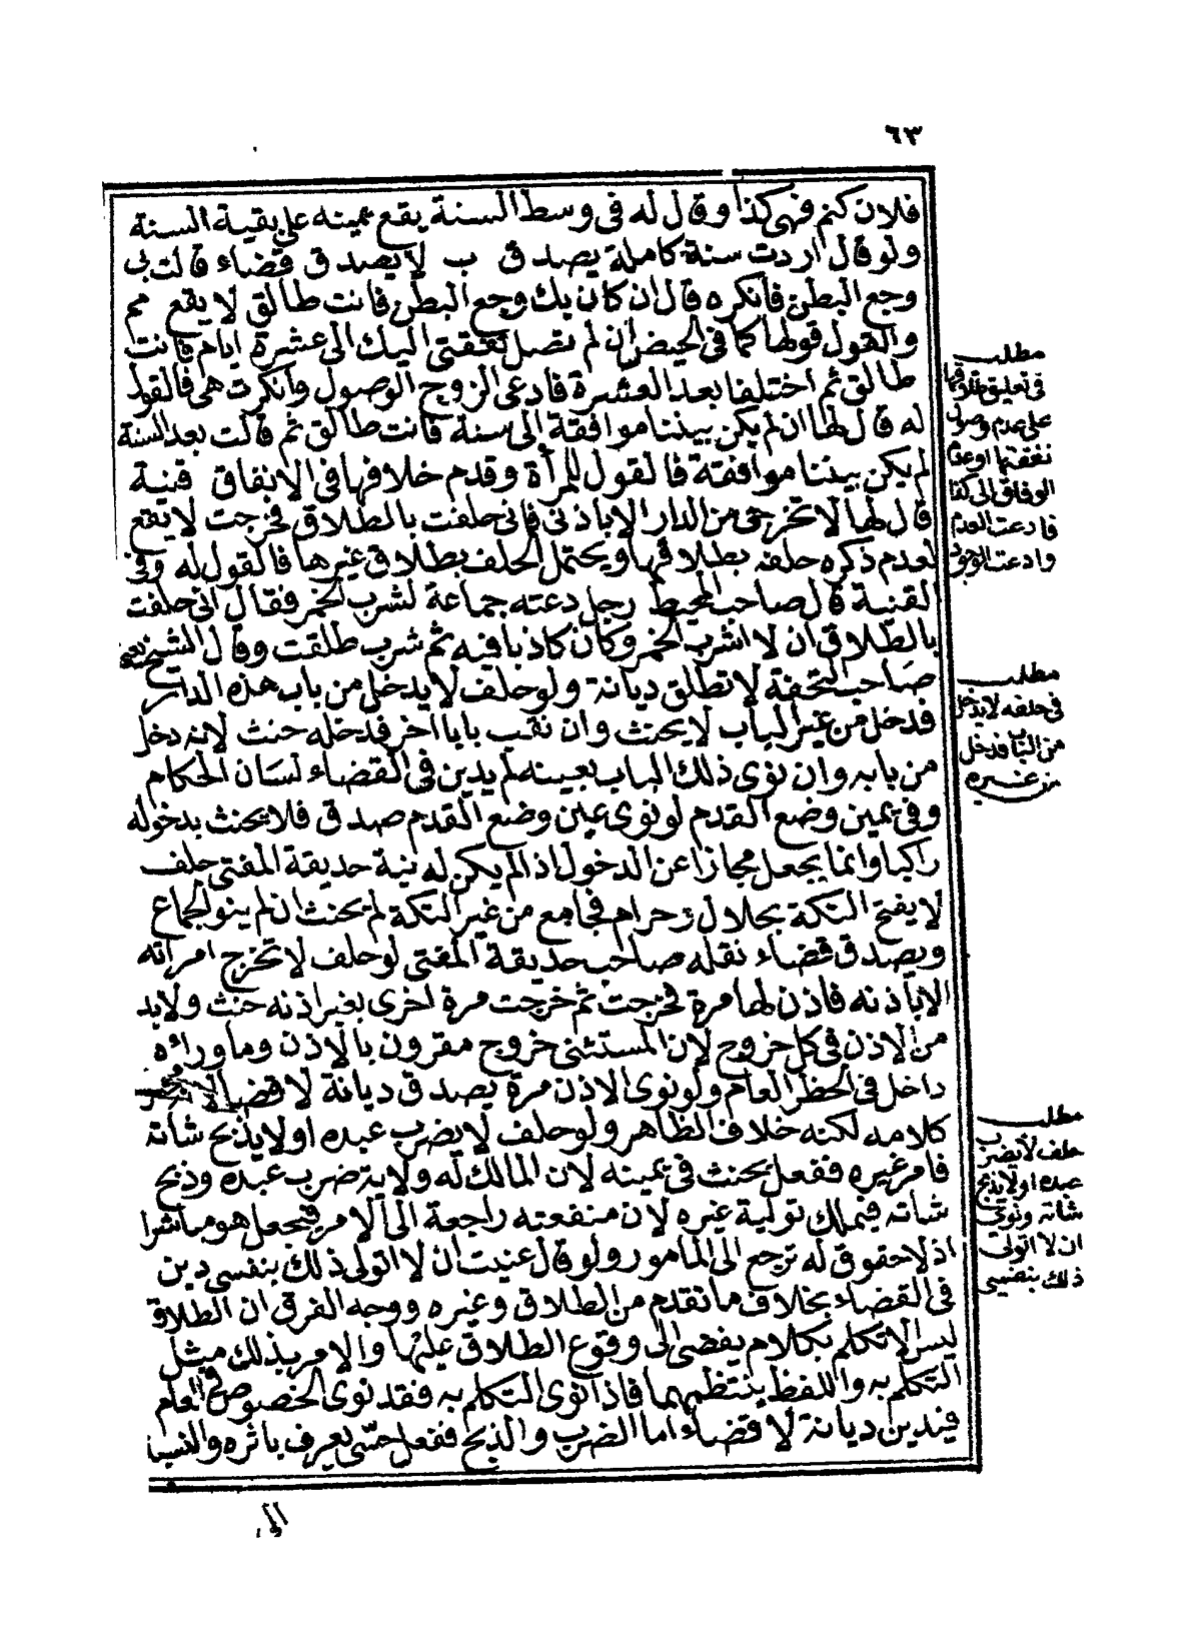 ٦٣
فلان كنم فهى كذا وقال له فى وسط السنة يقع يمينه على بقية السنة
ولو قال اردت سنة كاملة يصدق ب لا يصدق قضاء قالت بى
وجع البطن فانكره قال ان كان بك وجع البطن فانت طالق لا يقع مم
والقول قولها كما فى الحيض ان لم تصل نفقتى اليك الى عشرة ايام فانت
طالق ثم اختلفا بعد العشرة فادعى الزوج الوصول وانكرت هى فالقول
له قال لها ان لم يكن بيننا موافقة الى سنة فانت طالق ثم قالت بعد السنة
لم يكن بيننا موافقة فالقول للمرأة وقدم خلافها فى الانفاق قنية
قال لها لا تخرجى من الدار الا باذنى فانى حلفت بالطلاق فخرجت لا يقع
لعدم ذكره حلفه بطلاقها ويحتمل الحلف بطلاق غيرها فالقول له وفى
القنية قال صاحب المحيط رجل دعته جماعة لشرب الخمر فقال انى حلفت
بالطلاق ان لا اشرب الخمر وكان كاذبا فيه ثم شرب طلقت وقال الشيخ
صاحب التحفة لا تطلق ديانة ولو حلف لا يدخل من باب هذه الدار
فدخل من غير الباب لا يحنث وان نقب بابا اخر فدخله حنث لانه دخل
من بابه وان نوى ذلك الباب بعينه لم يدين فى القضاء لسان الحكام
وفى يمين وضع القدم لو نوى عين وضع القدم صدق فلا يحنث بدخوله
راكبا وانما يجعل مجازا عن الدخول اذا لم يكن له نية حديقة المفتى حلف
لا يفتح التكة بحلال وحرام فجامع من غير التكة لم يحنث ان لم ينو الجماع
ويصدق قضاء نقله صاحب حديقة المفتى لو حلف لا تخرج امراته
الا باذنه فاذن لها مرة فخرجت ثم خرجت مرة اخرى بغير اذنه حنث ولابد
من الاذن فى كل خروج لان المستثنى خروج مقرون بالاذن وما وراءه
داخل فى الحظر العام ولو نوى الاذن مرة يصدق ديانة لا قضاء
كلامه لكنه خلاف الظاهر ولو حلف لا يضرب عبده او لا يذبح شاته
فامر غيره ففعل يحنث فى يمينه لان المالك له ولاية ضرب عبده وذبح
شاته فيملك تولية غيره لان منفعته راجعة الى الامر فيجعل هو مباشرا
اذ لا حقوق له ترجع الى المامور ولو قال عنيت ان لا اتولى ذلك بنفسى دين
فى القضاء بخلاف ما تقدم من الطلاق وغيره ووجه الفرق ان الطلاق
ليس الا تكلم بكلام يفضى الى وقوع الطلاق عليها والامر بذلك مثل
التكلم به واللفظ ينتظمهما فاذا نوى التكلم به فقد نوى الخصوص فى العام
فيدين ديانة لا قضاء اما الضرب والذبح ففعل حسى يعرف باثره والنسبة
مطلب
فى تعليق طلاقها
على عدم وصول
نفقتها او عدم
الوفاق الى كذا
فادعت العدم
وادعت الوجود
مطلب
فى حلفه لا يدخل
من الباب فدخل
من غيره
مطلب
حلف لا يضرب
عبده او لا يذبح
شاته ونوى
ان لا اتولى
ذلك بنفسى
الى